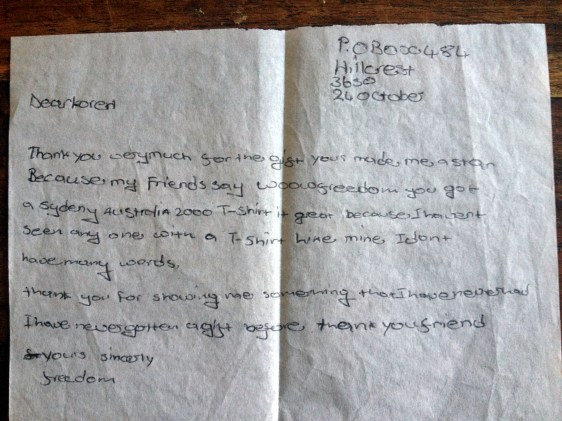 P.O Box 484
Hillcrest
3650
24 October
Dear Koren
Thank you very much for the gift your made me a star
Because my friends say woow freedom you got
a Sydeny Australia 2000 T-Shirt it great because I havent
seen any one with a T-Shirt like mine, I dont
have many words,
thank you for showing me something that I have never had
I have never gotten a gift before, thank you friend
yours sincerly
freedom